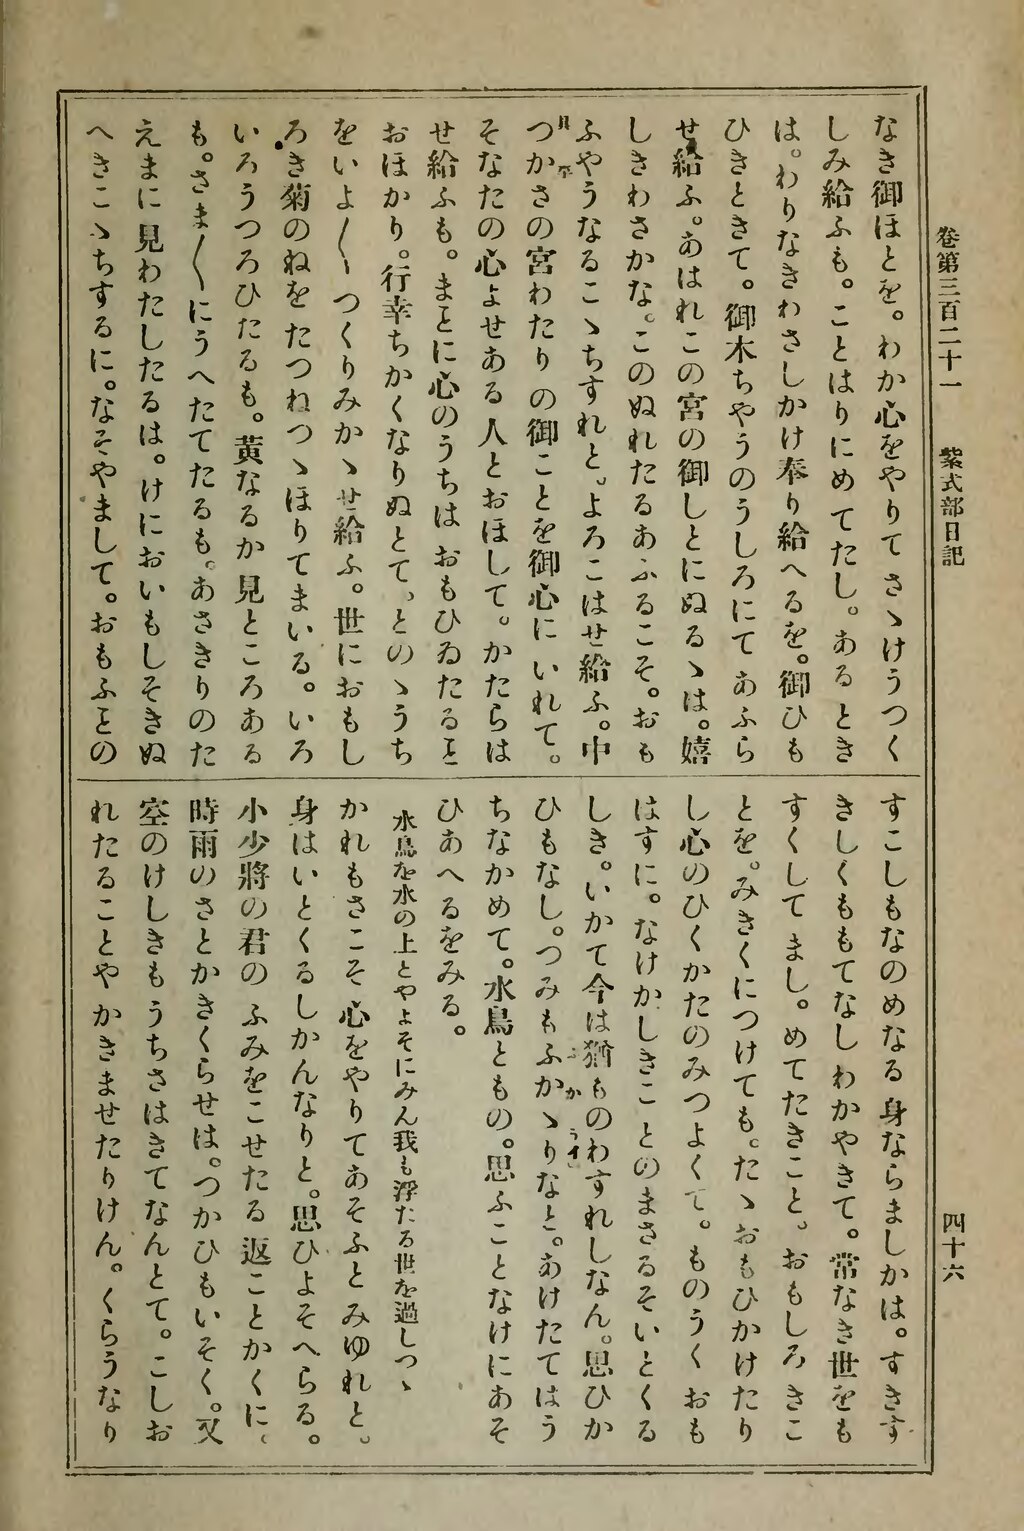 卷第三百二十一　紫式部日記　四十六
なき御ほとを。わか心をやりてさゝけうつく
しみ給ふも。ことはりにめてたし。あるとき
は。わりなきわさしかけ奉り給へるを。御ひも
ひきときて。御木ちやうのうしろにてあふら
せ給ふ。あはれこの宮の御しとにぬるゝは。嬉
しきわさかな。このぬれたるあふるこそ。おも
ふやうなるこゝちすれと。よろこはせ給ふ。中
つかさの宮わたりの御ことを御心にいれて。
そなたの心よせある人とおほして。かたらは
せ給ふも。まことに心のうちはおもひゐたるこ
おほかり。行幸ちかくなりぬとて。とのゝうち
をいよ〳〵つくりみかゝせ給ふ。世におもし
ろき菊のねをたつねつゝほりてまいる。いろ
いろうつろひたるも。黄なるか見ところある
も。さま〳〵にうへたてたるも。あさきりのた
えまに見わたしたるは。けにおいもしそきぬ
へきこゝちするに。なそやまして。おもふことの
すこしもなのめなる身ならましかは。すきす
きしくももてなしわかやきて。常なき世をも
すくしてまし。めてたきこと。おもしろきこ
とを。みきくにつけても。たゝおもひかけたり
し心のひくかたのみつよくて。ものうくおも
はすに。なけかしきことのまさるそいとくる
しき。いかて今は猶ものわすれしなん。思ひか
ひもなし。つみもふかゝりなと。あけたてはう
ちなかめて。水鳥ともの。思ふことなけにあそ
ひあへるをみる。
水鳥を水の上とやよそにみん我も浮たる世を過しつゝ
かれもさこそ心をやりてあそふとみゆれと。
身はいとくるしかんなりと。思ひよそへらる。
小少將の君のふみをこせたる返ことかくに。
時雨のさとかきくらせは。つかひもいそく。又
空のけしきもうちさはきてなんとて。こしお
れたることやかきませたりけん。くらうなり